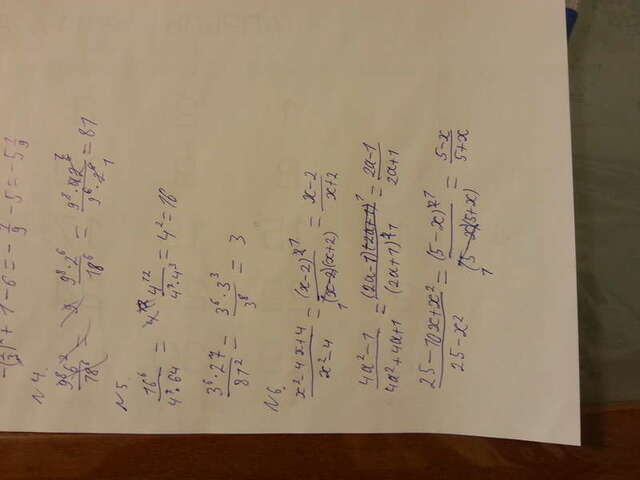 -(2/3)² + 1 - 6 = -7/9 - 5 = -5 7/9
N4.
9⁸·2⁶/18⁶ = 9⁸·2⁶/9⁶·2⁶ = 81
N5.
16⁶/4⁷·64 = 4¹²/4⁷·4³ = 4² = 16
3⁶·27/81² = 3⁶·3³/3⁸ = 3
N6.
x²-4x+4/x²-4 = (x-2)²/(x-2)(x+2) = x-2/x+2
4a²-1/4a²+4a+1 = (2a-1)(2a+1)/(2a+1)² = 2a-1/2a+1
25-10x+x²/25-x² = (5-x)²/(5-x)(5+x) = 5-x/5+x